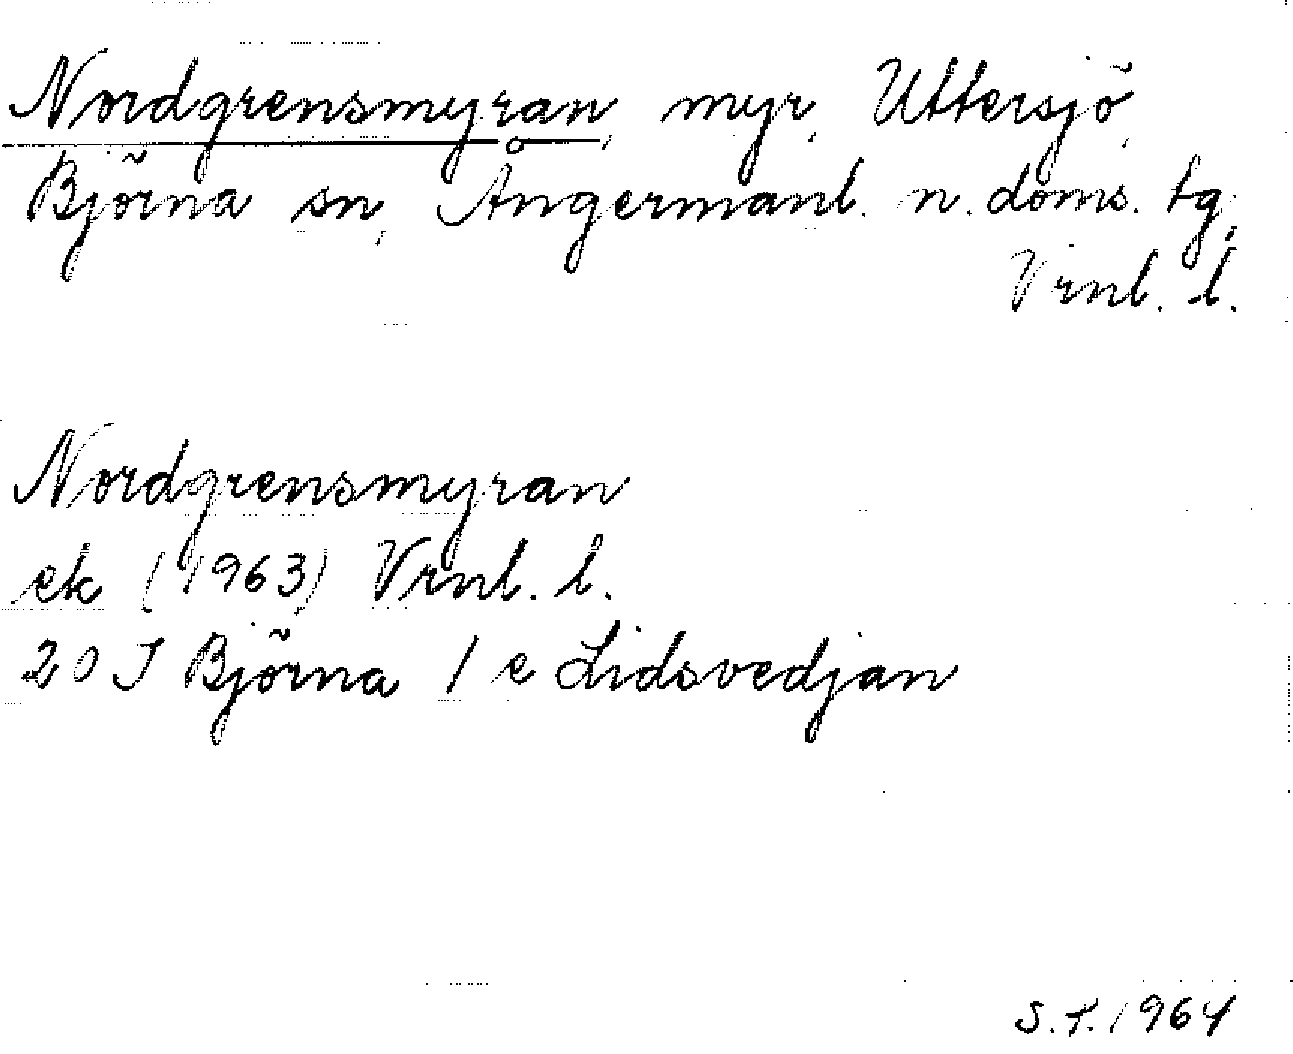 Nordgrensmyran, myr, Uttersjö,
Björna sn, Ångermanl. n. doms. tg,
Vrnl. l.
Nordgrensmyran
ek (1963) Vrnl. l.
20 J Björna 1 e Lidsvedjan
S.T. 1964